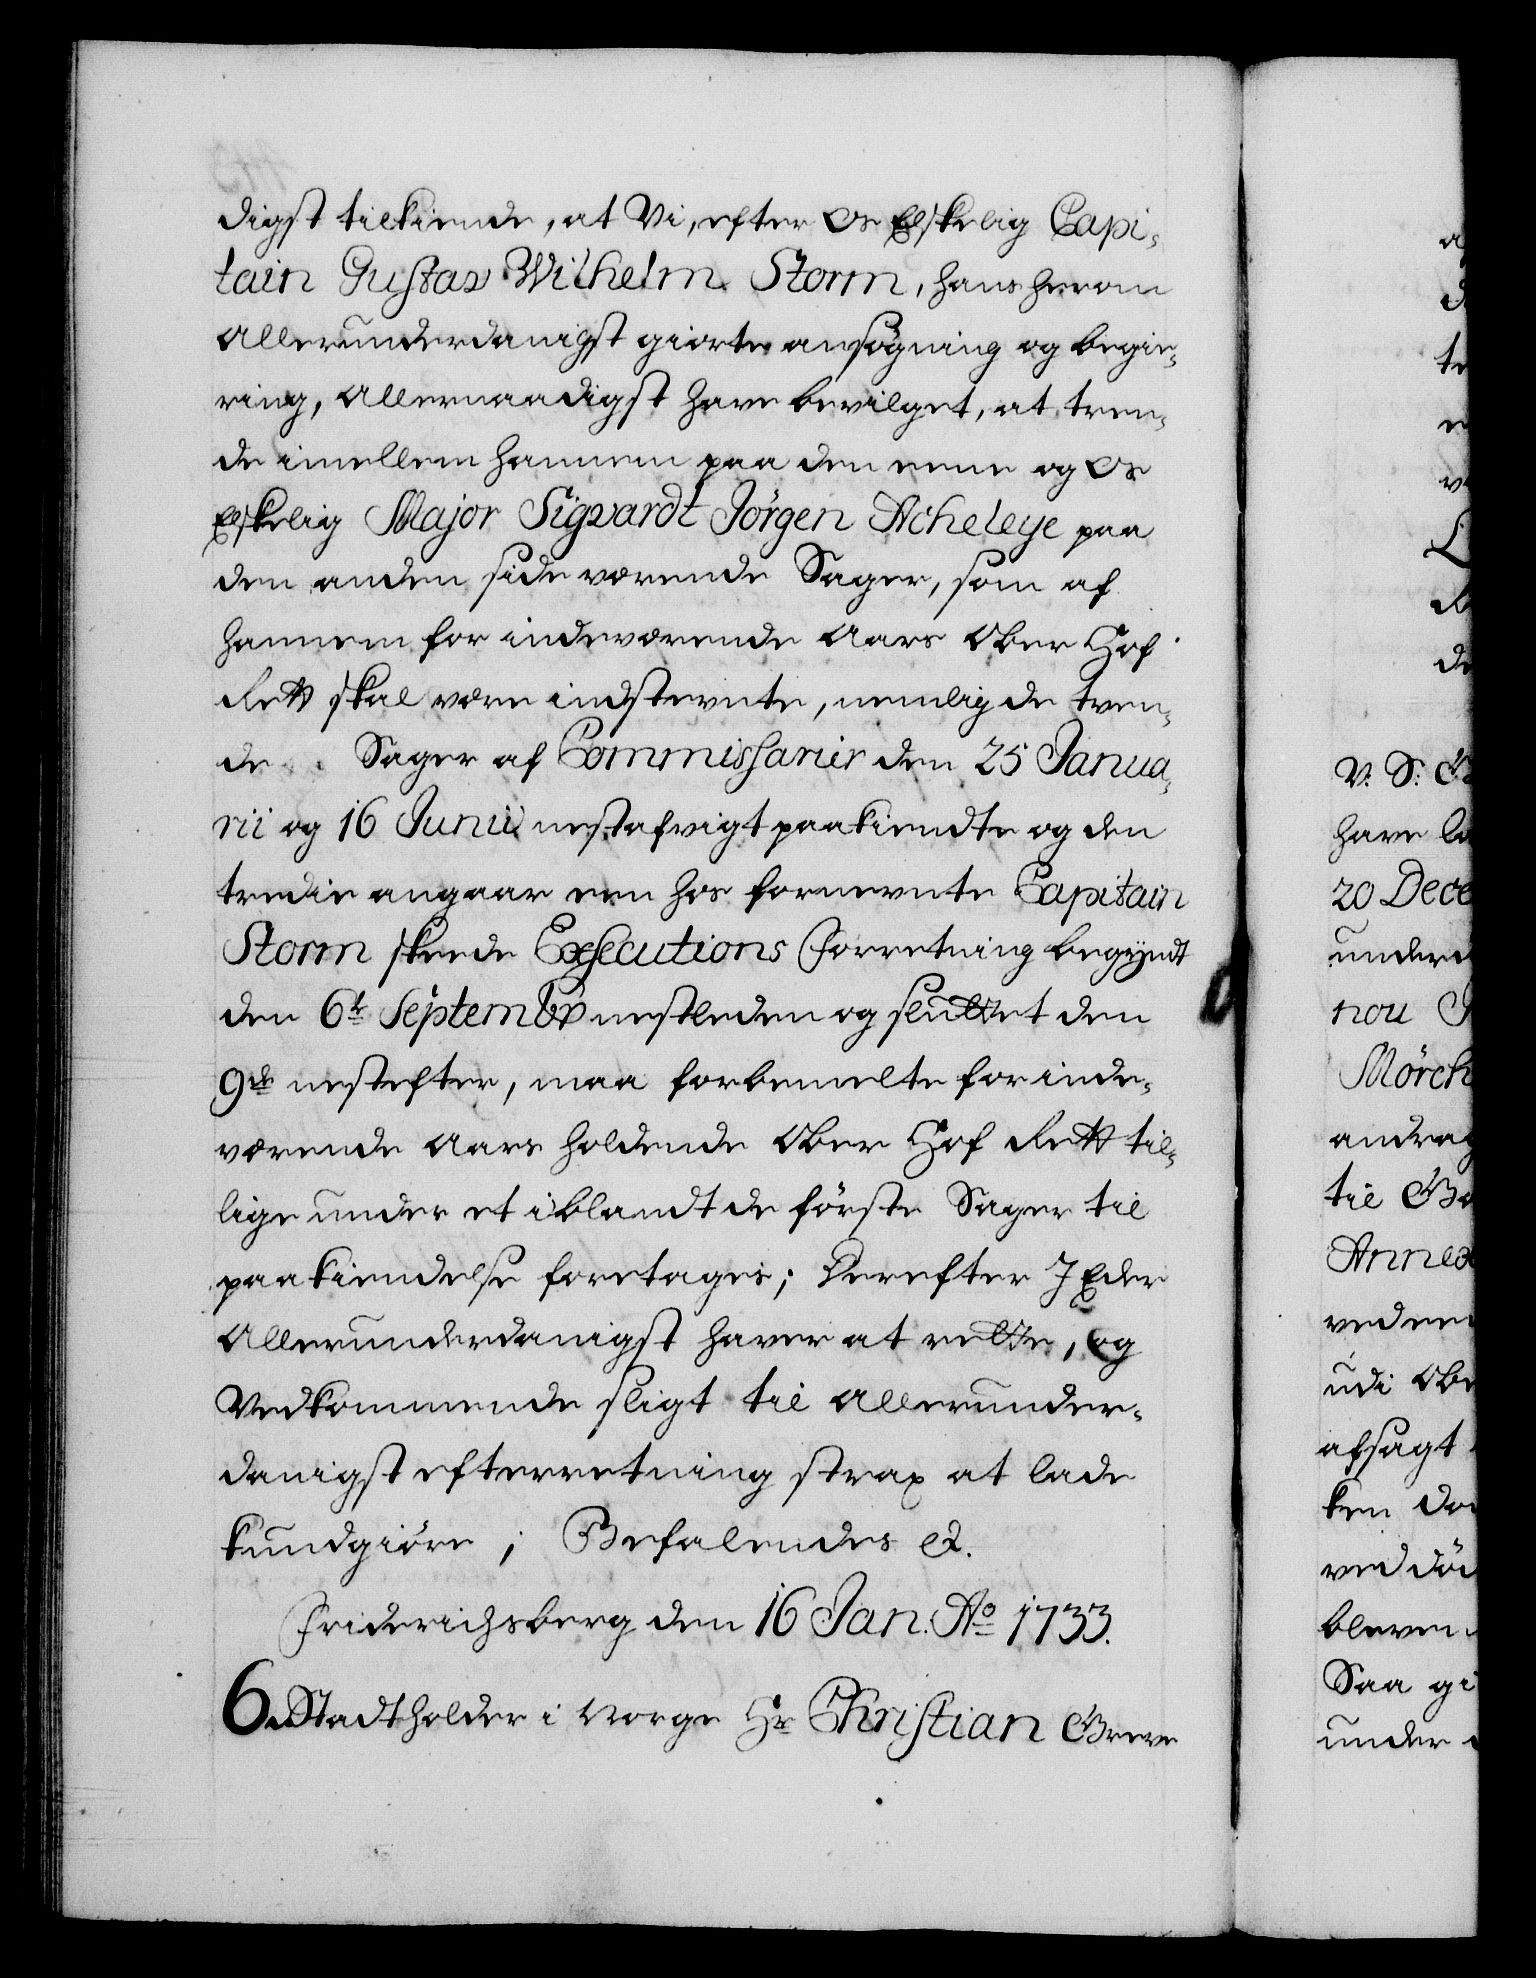 digst tilkiende, at Vi, efter Os Elskelig Capi-
tain Gustav Wilhelm Storm, hans herom
Allerunderdanigst giorte ansøgning og begie-
ring, Allernaadigst have bevilget, at tren-
de imellem hannem paa den eene og Os
Elskelig Major Sigvardt Jörgen Acheleye paa
den anden side værende Sager, som af
hannem for indeværende Aars Ober Hof
Rett skal være indstevnte, nemlig de tven-
de Sager af Commissarier den 25 Janua-
rii og 16 Junii nestafvigt paakiendte og den
tredie angaar een hos fornevnte Capitain
Storm skeede Executions Forretning begyndt
den 6t Septembr nestleden og sluttet den
9de nestefter, maa forbemelte for inde-
værende Aars holdende Ober Hof Rett til-
lige under et iblandt de förste Sager til
paakiendelse foretages; Derefter I Eder
Allerunderdanigst haver at rette, og
Vedkommende sligt til Allerunder-
danigst efterretning strax at lade
kundgiöre; Befalendes &.
Friderichsberg den 16 Jan. Ao 1733.
6. Stadtholder i Norge Hr Christian Greve
V. S. G
have la
20 Dece
underd
nou
Mörch
andrag
til
Annex
vederr
udi Obe
afsagt
ken
ved död
bleven
Saa gi
under